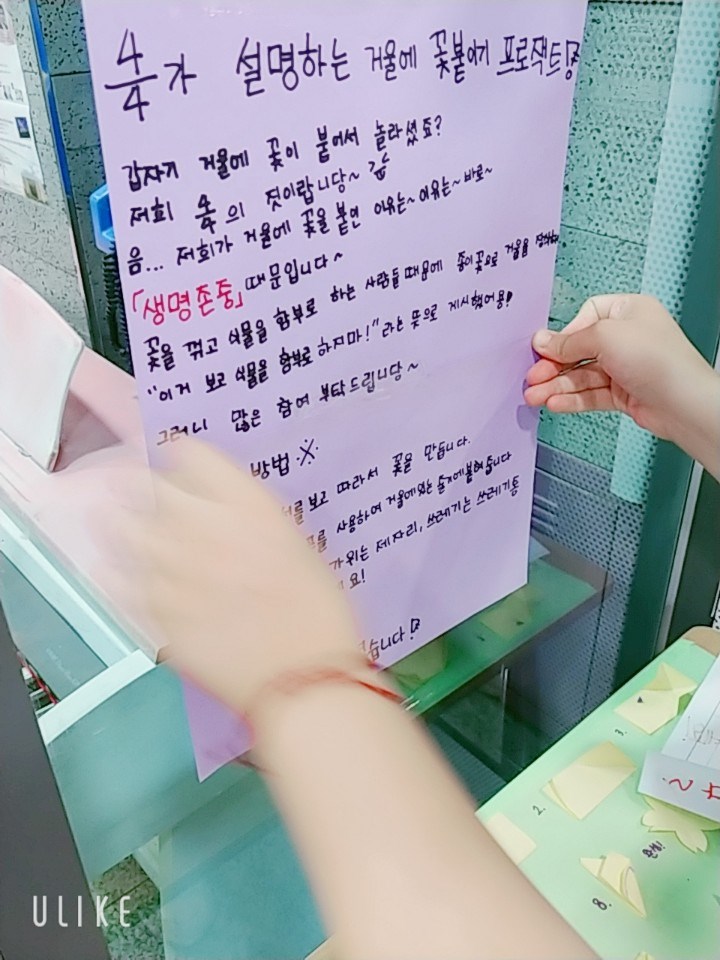 4/4가 설명하는 거울에 꽃붙이기 프로잭트!
갑자기 거울에 꽃이 붙어서 놀라셨죠?
저희 4/4의 짓이랍니당~
음... 저희가 거울에 꽃을 붙인 이유는~ 이유는~ 바로~
「생명존중」때문입니다~
꽃을 꺾고 식물을 함부로 하는 사람들 때문에 종이꽃으로 거울을
"이거 보고 식물을 함부로 하지마!" 라는 뜻으로 게시했어용!
그러니 많은 참여 부탁드립니당~
방법 ※
를 보고 따라서 꽃을 만듭니다.
를 사용하여 거울에있는 줄기에붙여줍니다
가위는 제자리, 쓰레기는 쓰레기통
요!
습니다!
3.
2.
완성!
8.
ULIKE